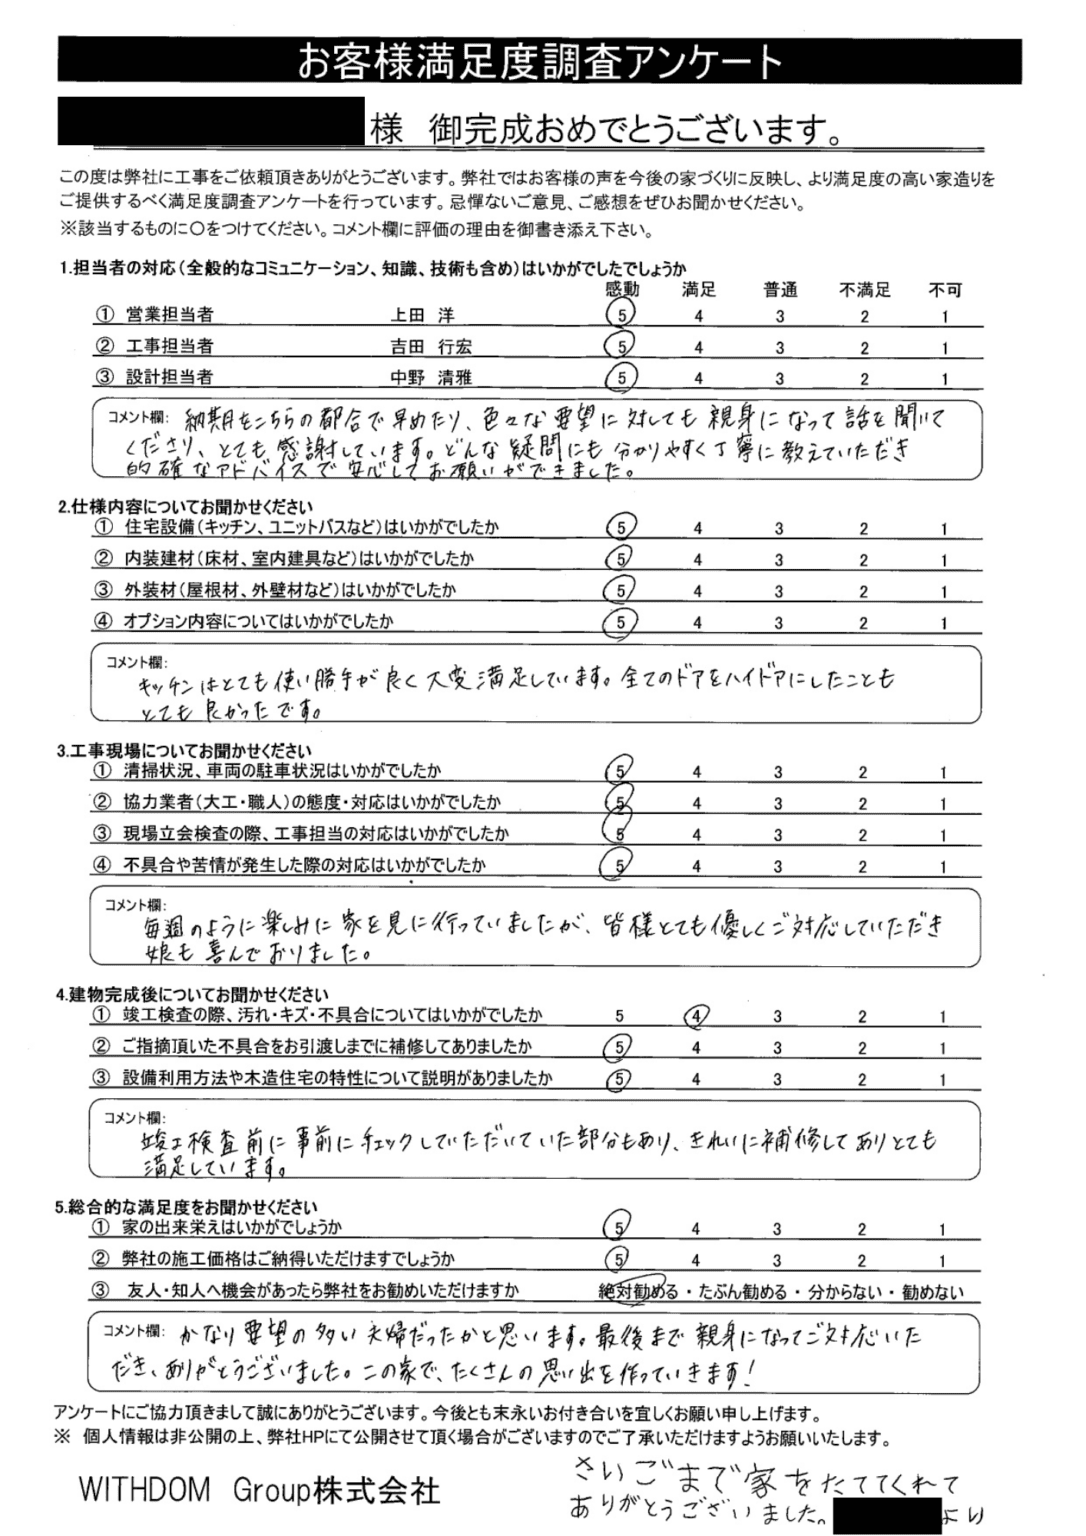 お客様満足度調査アンケート
様 御完成おめでとうございます。
この度は弊社に工事をご依頼頂きありがとうございます。弊社ではお客様の声を今後の家づくりに反映し、より満足度の高い家造りを
ご提供するべく満足度調査アンケートを行っています。忌憚ないご意見、ご感想をぜひお聞かせください。
※該当するものに〇をつけてください。コメント欄に評価の理由を御書き添え下さい。
1.担当者の対応(全般的なコミュニケーション、知識、技術も含め)はいかがでしたでしょうか
感動 満足 普通 不満足 不可
① 営業担当者 上田 洋 5 4 3 2 1
② 工事担当者 吉田 行宏 5 4 3 2 1
③ 設計担当者 中野 清雅 5 4 3 2 1
コメント欄: 納期をこちらの都合で早めたり、色々な要望に対しても親身になって話を聞いて
くださり、とても感謝しています。どんな疑問にも分かりやすく丁寧に教えていただき
的確なアドバイスで安心してお願いができました。
2.仕様内容についてお聞かせください
① 住宅設備(キッチン、ユニットバスなど)はいかがでしたか 5 4 3 2 1
② 内装建材(床材、室内建具など)はいかがでしたか 5 4 3 2 1
③ 外装材(屋根材、外壁材など)はいかがでしたか 5 4 3 2 1
④ オプション内容についてはいかがでしたか 5 4 3 2 1
コメント欄:
キッチンはとても使い勝手が良く大変満足しています。全てのドアをハイドアにしたことも
とても良かったです。
3.工事現場についてお聞かせください
① 清掃状況、車両の駐車状況はいかがでしたか 5 4 3 2 1
② 協力業者(大工・職人)の態度・対応はいかがでしたか 5 4 3 2 1
③ 現場立会検査の際、工事担当の対応はいかがでしたか 5 4 3 2 1
④ 不具合や苦情が発生した際の対応はいかがでしたか 5 4 3 2 1
コメント欄:
毎週のように楽しみに家を見に行っていましたが、皆様とても優しくご対応していただき
娘も喜んでおりました。
4.建物完成後についてお聞かせください
① 竣工検査の際、汚れ・キズ・不具合についてはいかがでしたか 5 4 3 2 1
② ご指摘頂いた不具合をお引渡しまでに補修してありましたか 5 4 3 2 1
③ 設備利用方法や木造住宅の特性について説明がありましたか 5 4 3 2 1
コメント欄:
竣工検査前に事前にチェックしていただいていた部分もあり、きれいに補修してありとても
満足しています。
5.総合的な満足度をお聞かせください
① 家の出来栄えはいかがでしょうか 5 4 3 2 1
② 弊社の施工価格はご納得いただけますでしょうか 5 4 3 2 1
③ 友人・知人へ機会があったら弊社をお勧めいただけますか 絶対勧める・たぶん勧める・分からない・勧めない
コメント欄: かなり要望の多い夫婦だったかと思います。最後まで親身になってご対応いた
だき、ありがとうございました。この家で、たくさんの思い出を作っていきます!
アンケートにご協力頂きまして誠にありがとうございます。今後とも末永いお付き合いを宜しくお願い申し上げます。
※ 個人情報は非公開の上、弊社HPにて公開させて頂く場合がございますのでご了承いただけますようお願いいたします。
WITHDOM Group株式会社
さいごまで家をたててくれて
ありがとうございました。 より